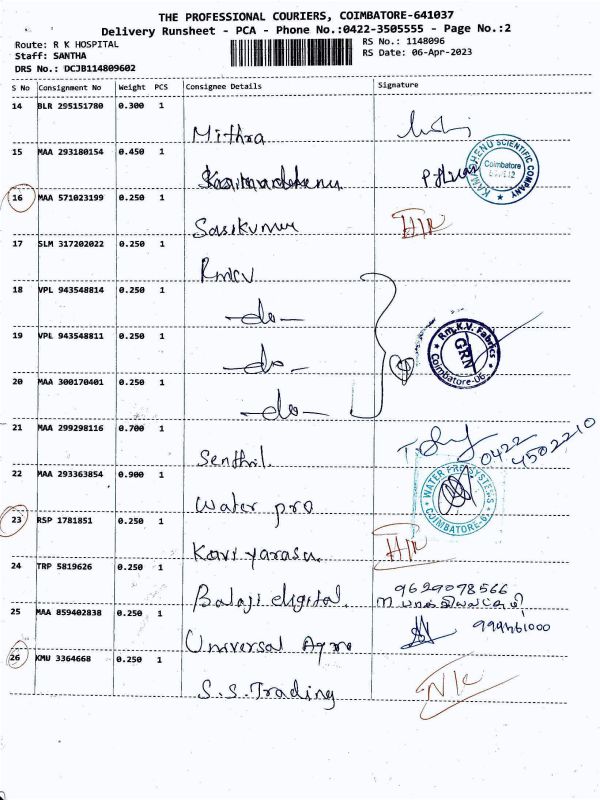 THE PROFESSIONAL COURIERS, COIMBATORE-641037
Delivery Runsheet - PCA - Phone No.:0422-3505555 - Page No.:2
Route: R K HOSPITAL
RS No.: 1148096
Staff: SANTHA
RS Date: 06-Apr-2023
DRS No.: DCJB114809602
S No Consignment No Weight PCS Consignee Details Signature
14 BLR 295151780 0.300 1
Mithra
15 MAA 293180154 0.450 1
KAMADHENU SCIENTIFIC COMPANY Coimbatore
16 MAA 571023199 0.250 1
Sasikumar
17 SLM 317202022 0.250 1
Rmkv
18 VPL 943548814 0.250 1
-do-
19 VPL 943548811 0.250 1
-do-
Rm.K.V. Fabrics GRN Coimbatore-06
20 MAA 300170401 0.250 1
-do-
21 MAA 299298116 0.700 1
Senthil. 0422 4502210
22 MAA 293363854 0.900 1
Water pro
WATER PRO SYSTEMS COIMBATORE-6
23 RSP 1781851 0.250 1
Kaviyarasu
24 TRP 5819626 0.250 1
Balaji digital. 9629078566
25 MAA 859402838 0.250 1
Universal Agro
26 KMU 3364668 0.250 1
S.S.Trading